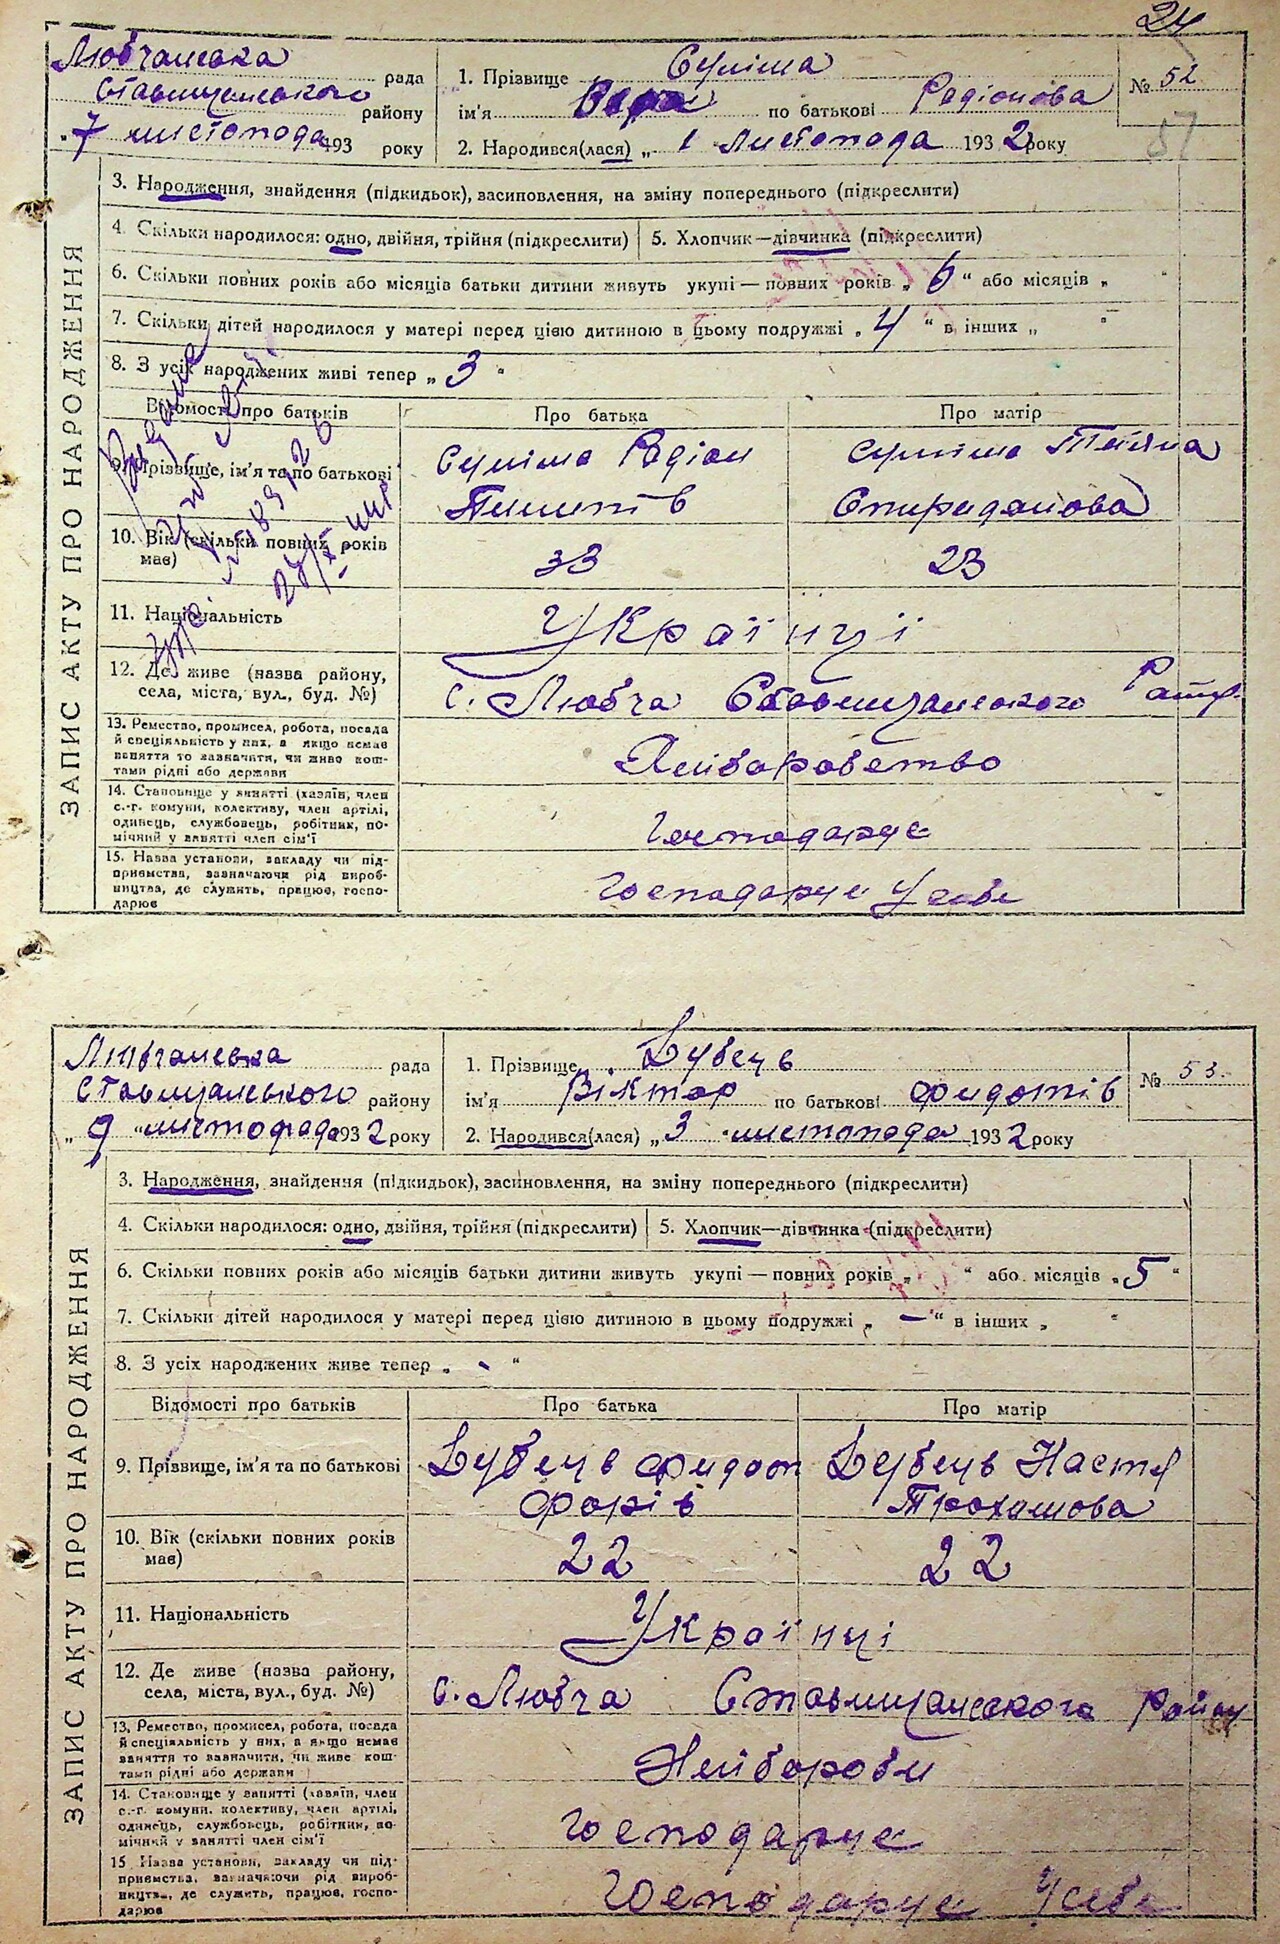 24
Любчанська рада
Ставищанського району
„7 листопода 193 року
1. Прізвище Суліма
ім'я Вера по батькові Радіонова
2. Народився(лася) „ 1 Листопода 1932 року
№ 52
57
ЗАПИС АКТУ ПРО НАРОДЖЕННЯ
3. Народження, знайдення (підкидьок), засиновлення, на зміну попереднього (підкреслити)
4. Скільки народилося: одно, двійня, трійня (підкреслити) 5. Хлопчик—дівчинка (підкреслити)
6. Скільки повних років або місяців батьки дитини живуть укупі — повних років „ 6 “ або місяців „ “
7. Скільки дітей народилося у матері перед цією дитиною в цьому подружжі „ 4 “ в інших „ “
8. З усіх народжених живі тепер „ 3 “
Відомості про батьків Про батька Про матір
9. Прізвище, ім'я та по батькові Суліма Радіон Суліма Тетяна
Спиридонова
10. Вік (скільки повних років
має) 33 23
11. Національність Українці
12. Де живе (назва району,
села, міста, вул., буд. №) с. Любча Ставищанського
13. Ремество, промисел, робота, посада
й спеціальність у них, а якщо немає
заняття то зазначити, чи живе кош-
тами рідні або держави
14. Становище у занятті (хазяїн, член
с.-г. комуни, колективу, член артілі,
одинець, службовець, робітник, по-
мічний у занятті член сім'ї Господарує
15. Назва установи, закладу чи під-
приємства, зазначаючи рід вироб-
ництва, де служить, працює, госпо-
дарює Господарує У себе
Любчанська рада
Ставищанського району
„ 9 “ листопада 1932 року
1. Прізвище Дубець
ім'я Віктор по батькові Фидотів
2. Народився(лася) „ 3 “ листопода 1932 року
№ 53.
ЗАПИС АКТУ ПРО НАРОДЖЕННЯ
3. Народження, знайдення (підкидьок), засиновлення, на зміну попереднього (підкреслити)
4. Скільки народилося: одно, двійня, трійня (підкреслити) 5. Хлопчик—дівчинка (підкреслити)
6. Скільки повних років або місяців батьки дитини живуть укупі — повних років „ “ або місяців „ 5 “
7. Скільки дітей народилося у матері перед цією дитиною в цьому подружжі „ — “ в інших „ “
8. З усіх народжених живе тепер „ - “
Відомості про батьків Про батька Про матір
9. Прізвище, ім'я та по батькові Дубець Фидот Дубець Настя
Трохимова
10. Вік (скільки повних років
має) 22 22
11. Національність Українці
12. Де живе (назва району,
села, міста, вул., буд. №) с. Любча Ставищанського Район
13. Ремество, промисел, робота, посада
й спеціальність у них, а якщо немає
заняття то вазначити, чи живе кош-
тами рідні або держави
14. Становище у занятті (хазяїн, член
с.-г. комуни, колективу, член артілі,
одинець, службовець, робітник, по-
мічний у занятті член сім'ї Господарує
15 Назва установи, закладу чи під-
приємства, вазначаючи рід вироб-
ництва, де служить, працює, госпо-
дарює Господарує У себе